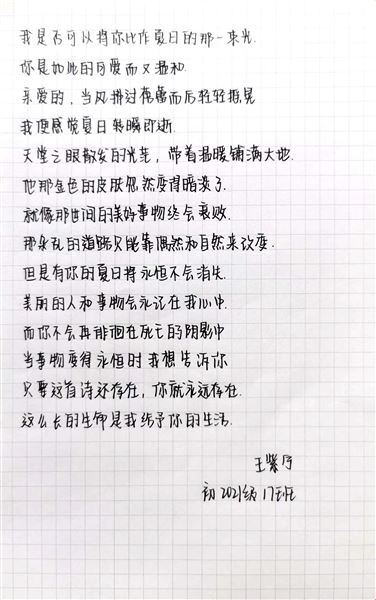 我是否可以将你比作夏日的那一束光.
你是如此的可爱而又温和.
亲爱的，当风拂过花蕾而后轻轻摇晃
我便感觉夏日转瞬即逝.
天堂之眼散发的光芒，带着温暖铺满大地.
他那金色的皮肤忽然变得暗淡了.
就像那世间的美好事物终会衰败.
那杂乱的道路只能靠偶然和自然来改变.
但是有你的夏日将永恒不会消失.
美丽的人和事物会永记在我心中.
而你不会再徘徊在死亡的阴影中
当事物变得永恒时我想告诉你
只要这首诗还存在，你就永远存在.
这么长的生命是我给予你的生活.
王紫
初2021级17班